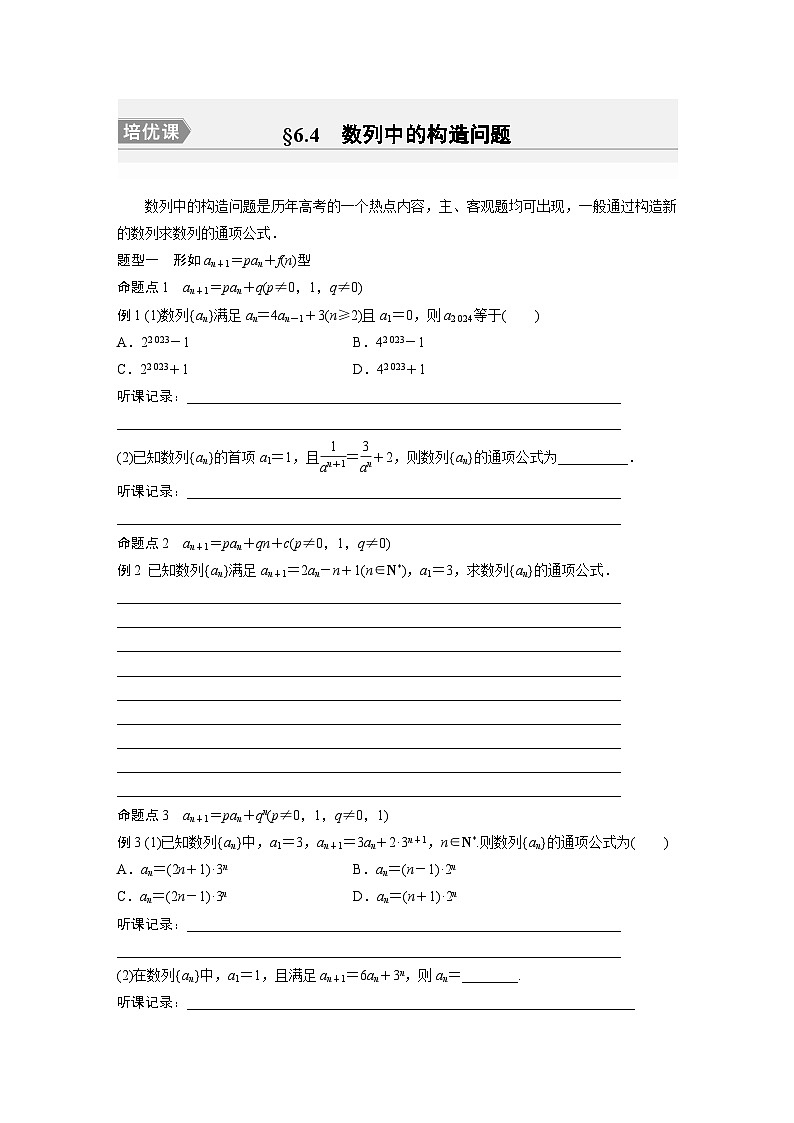 培优课 §6.4 数列中的构造问题
数列中的构造问题是历年高考的一个热点内容，主、客观题均可出现，一般通过构造新
的数列求数列的通项公式．
题型一 形如 aₙ₊₁＝paₙ＋f(n)型
命题点 1 aₙ₊₁＝paₙ＋q(p≠0，1，q≠0)
例 1 (1)数列{aₙ}满足 aₙ＝4aₙ₋₁＋3(n≥2)且 a₁＝0，则 a₂ ₀₂₄ 等于( )
A．2² ⁰²³－1 B．4² ⁰²³－1
C．2² ⁰²³＋1 D．4² ⁰²³＋1
听课记录：______________
(2)已知数列{aₙ}的首项 a₁＝1，且1/aⁿ⁺¹＝3/aⁿ＋2，则数列{aₙ}的通项公式为__________．
听课记录：______________
命题点 2 aₙ₊₁＝paₙ＋qn＋c(p≠0，1，q≠0)
例 2 已知数列{aₙ}满足 aₙ₊₁＝2aₙ－n＋1(n∈N*)，a₁＝3，求数列{aₙ}的通项公式．
命题点 3 aₙ₊₁＝paₙ＋qⁿ(p≠0，1，q≠0，1)
例 3 (1)已知数列{aₙ}中，a₁＝3，aₙ₊₁＝3aₙ＋2·3ⁿ⁺¹，n∈N*.则数列{aₙ}的通项公式为( )
A．aₙ＝(2n＋1)·3ⁿ B．aₙ＝(n－1)·2ⁿ
C．aₙ＝(2n－1)·3ⁿ D．aₙ＝(n＋1)·2ⁿ
听课记录：______________
(2)在数列{aₙ}中，a₁＝1，且满足 aₙ₊₁＝6aₙ＋3ⁿ，则 aₙ＝________.
听课记录：______________